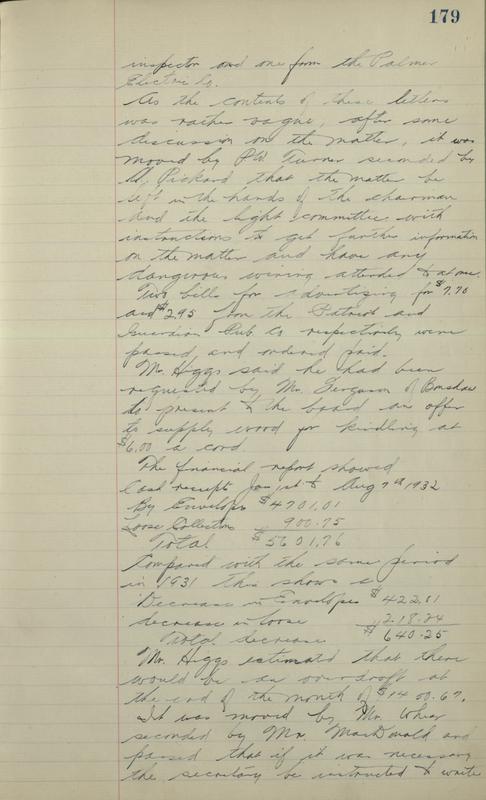 179
inspector and one from the Palmer
Electric Co.
As the contents of these letters
was rather vague, after some
discussion on the matter, it was
moved by PW Turner seconded by
Pickard that the matter be
left in the hands of the chairman
and the light committee with
instructions to get further information
on the matter and have any
dangerous wiring attended to at once.
Two bills for advertizing for $7.70
and $2.95 from the Patriot and
Guardian Pub Co respectively were
passed and ordered paid.
Mr. Higgs said he had been
requested by Mr. Ferguson of Bonshaw
to present to the board an offer
to supply wood for kindling at
$6.00 a cord.
The financial report showed
Cash receipts Jan 1st to Aug 7th 1932
By Envelopes $4701.01
Loose Collection 900.75
Total $5601.76
Compared with the same period
in 1931 this shows a
Decrease in Envelopes $422.01
decrease in loose 218.24
Total decrease $640.25
Mr. Higgs estimated that there
would be an overdraft at
the end of the month of $1400.67.
It was moved by Mr.
seconded by Mr. MacDonald and
passed that if it was necessary
the secretary be instructed to write